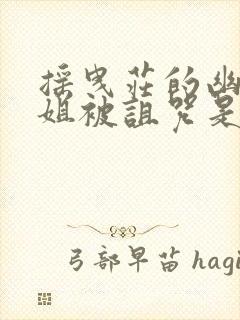 採曳莊的幽
姐被詛咒是
弓部早苗 hagi